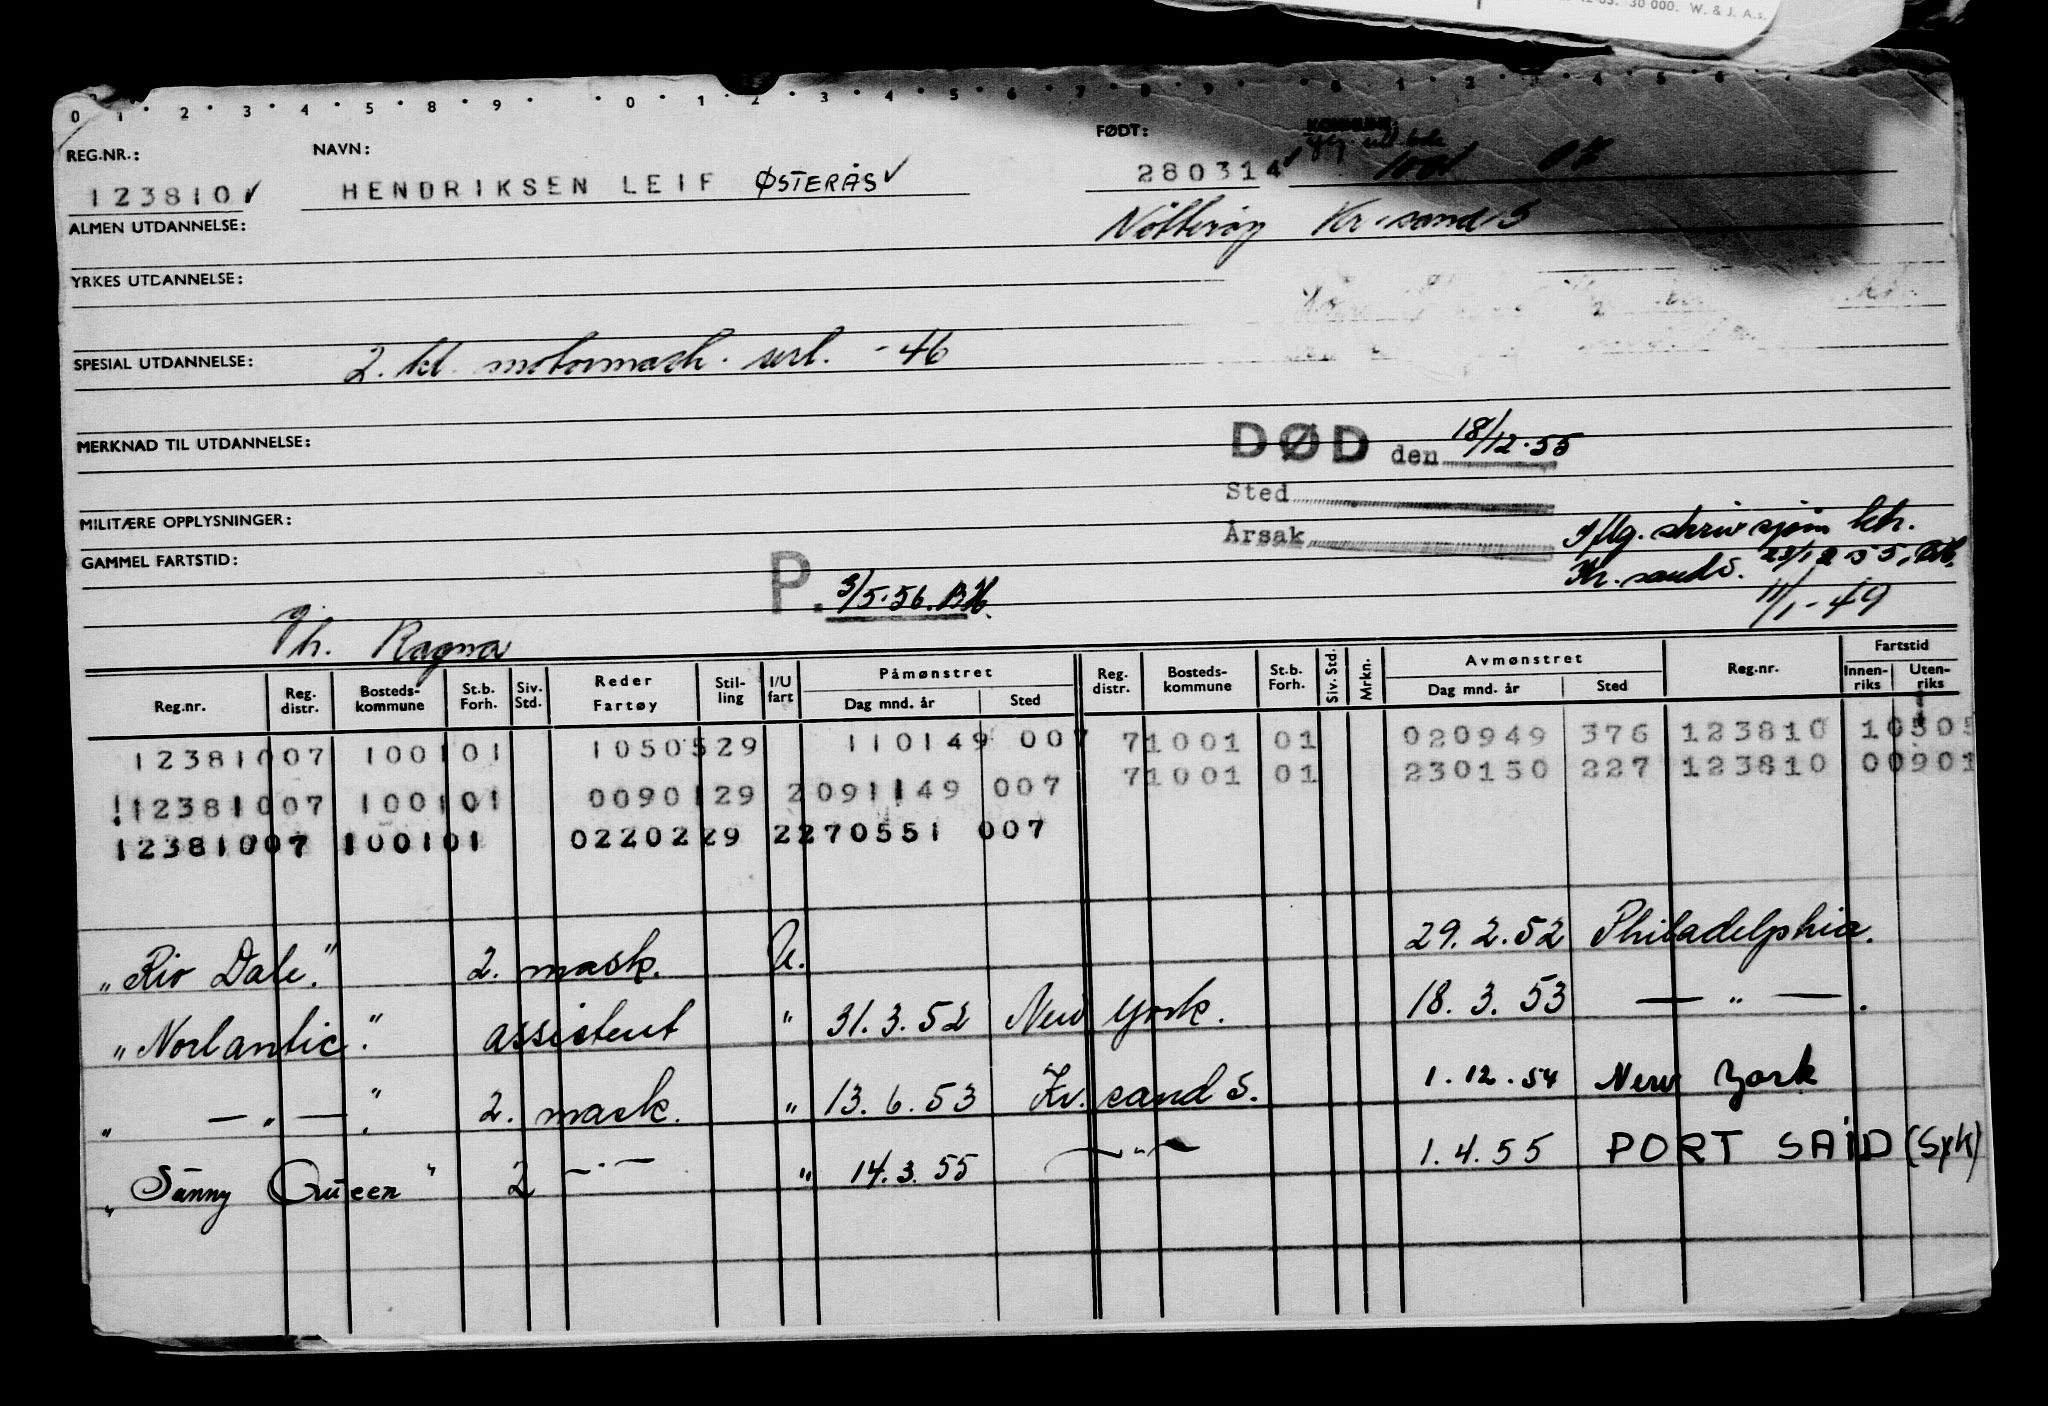 30 000. W. & J. A.s.
0 1 . 2 . 3 . 4 . 5 . 8 . 9 . . 0 . 1 . 2 . 3 . 4 . 5 . 6 . 7 . 8 . 9 . . 0 . 1 . 2 . 3 . 4 . 5 . 6
REG.NR.: NAVN: FØDT: KOMMUNE:
123810 ✓ HENDRIKSEN LEIF ØSTERÅS ✓ 280314 ✓ 1001 07
ALMEN UTDANNELSE: Nøtterøy Kr.sand S
YRKES UTDANNELSE:
SPESIAL UTDANNELSE: 2. kl. motormask. sert. -46
MERKNAD TIL UTDANNELSE: DØD den 18/12.55
Sted
MILITÆRE OPPLYSNINGER: Årsak Iflg. skriv sjøm. ktr.
GAMMEL FARTSTID: Kr.sand S. 23/12 55. BH.
P. 3/5.56. BH. 11/1-49
Gh. Ragna
Reg.nr. Reg. distr. Bosteds-kommune St.b. Forh. Siv. Std. Reder Fartøy Stil-ling I/U fart Påmønstret Dag mnd. år Sted Reg. distr. Bosteds-kommune St.b. Forh. Siv. Std. Mrkn. Avmønstret Dag mnd. år Sted Reg.nr. Fartstid Innen-riks Uten-riks
12381007 100101 1050529 110149 007 71001 01 020949 376 123810 10505
!12381007 100101 0090129 2091149 007 71001 01 230150 227 123810 00901
12381007 100101 0220229 2270551 007
"Rio Dale." 2. mask. U. 29.2.52 Philadelphia.
"Norlantic." assistent " 31.3.52 New York. 18.3.53 — " — .
" — " — " . 2. mask. " 13.6.53 Kr.sand S. 1.12.54 New York
" Sunny Queen " 2 — " — " 14.3.55 — " — 1.4.55 PORT SAID (SYK)